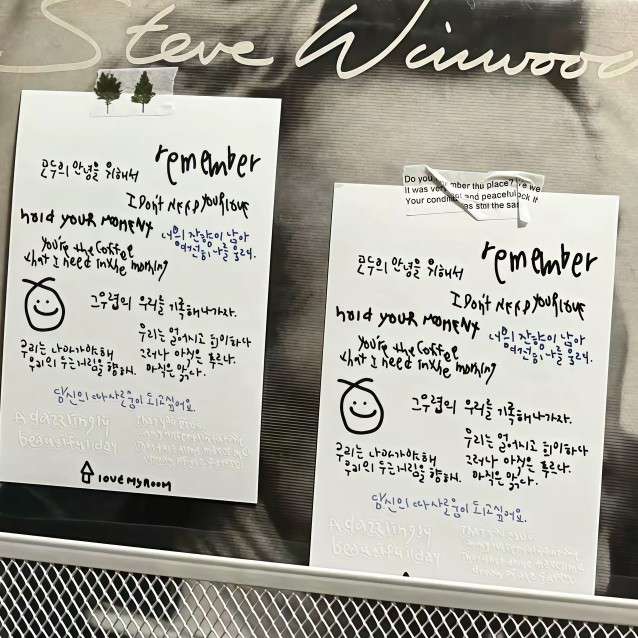 Steve Winwood
remember
모두의 안녕을 위해서
I Don't NEED YOUR LOVE
hold your moment
너의 잔향이 남아
여전히 나를 울려.
You're the coffee
that I need in the morning
그 무렵의 우리를 기록해나가자.
우리는 젊어지고 희미하나
그러나 아직은 푸르다.
아직은 맑다.
우리는 나아가야해
우리의 두근거림을 향해.
당신의 따사로움이 되고싶어요.
A dazzlingly
beautiful day
LOVE MY ROOM
Do you
It was very
Your
and peaceful
was still the
remember
모두의 안녕을 위해서
I Don't NEED YOUR LOVE
hold your moment
너의 잔향이 남아
여전히 나를 울려.
You're the coffee
that I need in the morning
그 무렵의 우리를 기록해나가자.
우리는 젊어지고 희미하나
그러나 아직은 푸르다.
아직은 맑다.
우리는 나아가야해
우리의 두근거림을 향해.
당신의 따사로움이 되고싶어요.
A dazzlingly
beautiful day